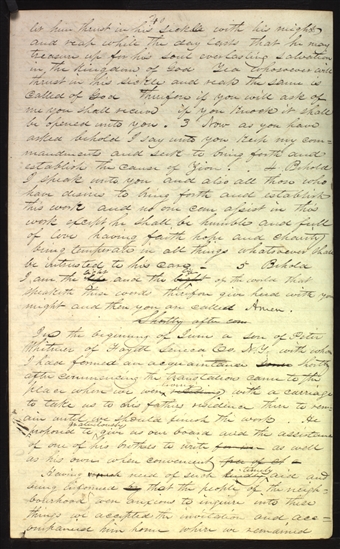 let him thrust in his sickle with his might
and reap while the day lasts that he may
treasure up for his soul everlasting salvation
in the kingdom of God Yea whosoever will
thrust in his sickle and reap the same is
called of God Therefore if you will ask of
me you shall receive if you knock it shall
be opened unto you. 3 Now as you have
asked behold I say unto you keep my com-
mandments and seek to bring forth and
establish the cause of Zion. 4 Behold
I speak unto you and also all those who
have desires to bring forth and establish
this work and no one can assist in this
work except he shall be humble and full
of love having faith hope and charity
being temperate in all things whatsoever shall
be intrusted to his care 5 Behold
I am the light and the life of the world that
speaketh these words therefore give heed with your
might and then you are called Amen.
Shortly after com
In the beginning of June a son of Peter
Whitmer of Fayett Seneca Co. N.Y. with whom
I had formed an acquaintance shortly
after commencing the translation came to the
place where we were with a carriage
to take us to his fathers residence there to rem-
ain until we should finish the work. He
proposed to give us our board and the assistance
of one of his brothers to write as well
as his own when convenient
Having much need of such timely aid and
being informed that the people of the neigh-
bourhood were anxious to inquire into these
things we accepted the invitation and acc-
ompanied him home where we remained